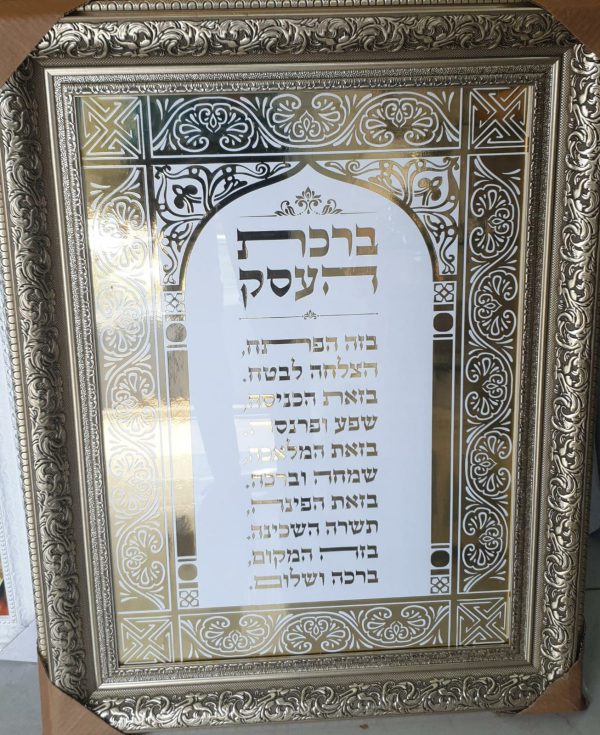 ברכת
העסק
בזה הפתח,
הצלחה לבטח.
בזאת הכניסה,
שפע ופרנסה.
בזאת המלאכה,
שמחה וברכה.
בזאת הפינה,
תשרה השכינה.
בזה המקום,
ברכה ושלום.